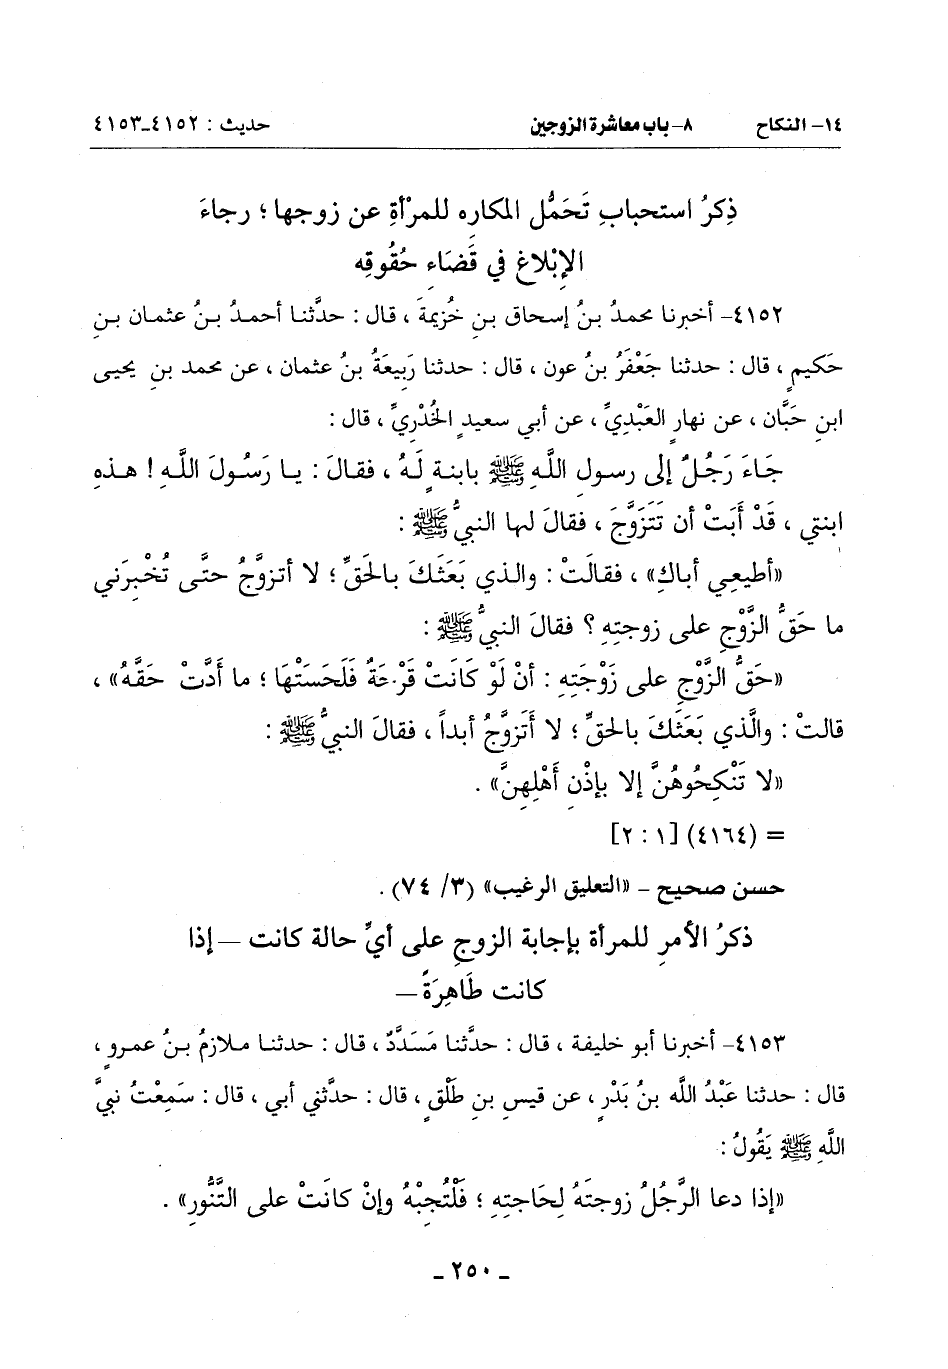 ١٤- النكاح ٨- باب معاشرة الزوجين حديث : ٤١٥٢-٤١٥٣
ذِكرُ استحبابِ تَحَمُّل المكاره للمرْأةِ عن زوجها ؛ رجاءَ
الإبْلاغِ في قَضَاءِ حُقُوقِه
٤١٥٢- أخبرنا محمدُ بنُ إسحاق بنِ خُزيمةَ ، قال : حدَّثنا أحمدُ بنُ عثمان بنِ
حَكيمٍ ، قال : حدثنا جَعْفَرُ بنُ عون ، قال : حدثنا رَبيعَةُ بنُ عثمان ، عن محمد بنِ يحيى
ابنِ حَبَّان ، عن نهارٍ العَبْديِّ ، عن أبي سعيدٍ الخُدْريِّ ، قال :
جَاءَ رَجُلٌ إلى رسولِ اللَّهِ ﷺ بابنةٍ لَهُ ، فقالَ : يا رَسُولَ اللَّهِ ! هذهِ
ابنتي ، قَدْ أبَتْ أن تَتَزَوَّجَ ، فقالَ لها النبيُّ ﷺ :
«أطيعِي أباكِ» ، فقالَتْ : والذي بَعَثَكَ بالحَقِّ ؛ لا أتزوَّجُ حتَّى تُخْبِرَني
ما حَقُّ الزَّوْجِ على زوجتِهِ ؟ فقالَ النبيُّ ﷺ :
«حَقُّ الزَّوْجِ على زَوْجَتِهِ : أنْ لَوْ كَانَتْ قَرْحَةٌ فَلَحَسَتْهَا ؛ ما أدَّتْ حَقَّهُ» ،
قالتْ : والَّذي بَعَثَكَ بالحقِّ ؛ لا أتَزوَّجُ أبداً ، فقالَ النبيُّ ﷺ :
«لا تَنْكِحُوهُنَّ إلا بإذْنِ أهْلِهِنَّ» .
= (٤١٦٤) [١ : ٢]
حسن صحيح - «التعليق الرغيب» (٣/ ٧٤) .
ذكرُ الأمرِ للمرأة بإجابة الزوجِ على أيِّ حالة كانت – إذا
كانت طَاهِرَةً –
٤١٥٣- أخبرنا أبو خليفة ، قال : حدَّثنا مَسَدَّدٌ ، قال : حدثنا ملازمُ بنُ عمروٍ ،
قال : حدثنا عَبْدُ اللَّه بنُ بَدْرٍ ، عن قيسِ بنِ طَلْقٍ ، قال : حدَّثني أبي ، قال : سَمِعْتُ نبيَّ
اللَّهِ ﷺ يَقُولُ :
«إذا دعا الرَّجُلُ زوجتَهُ لِحَاجتِهِ ؛ فَلْتُجِبْهُ وإنْ كانَتْ على التَّنُّورِ» .
- ٢٥٠ -